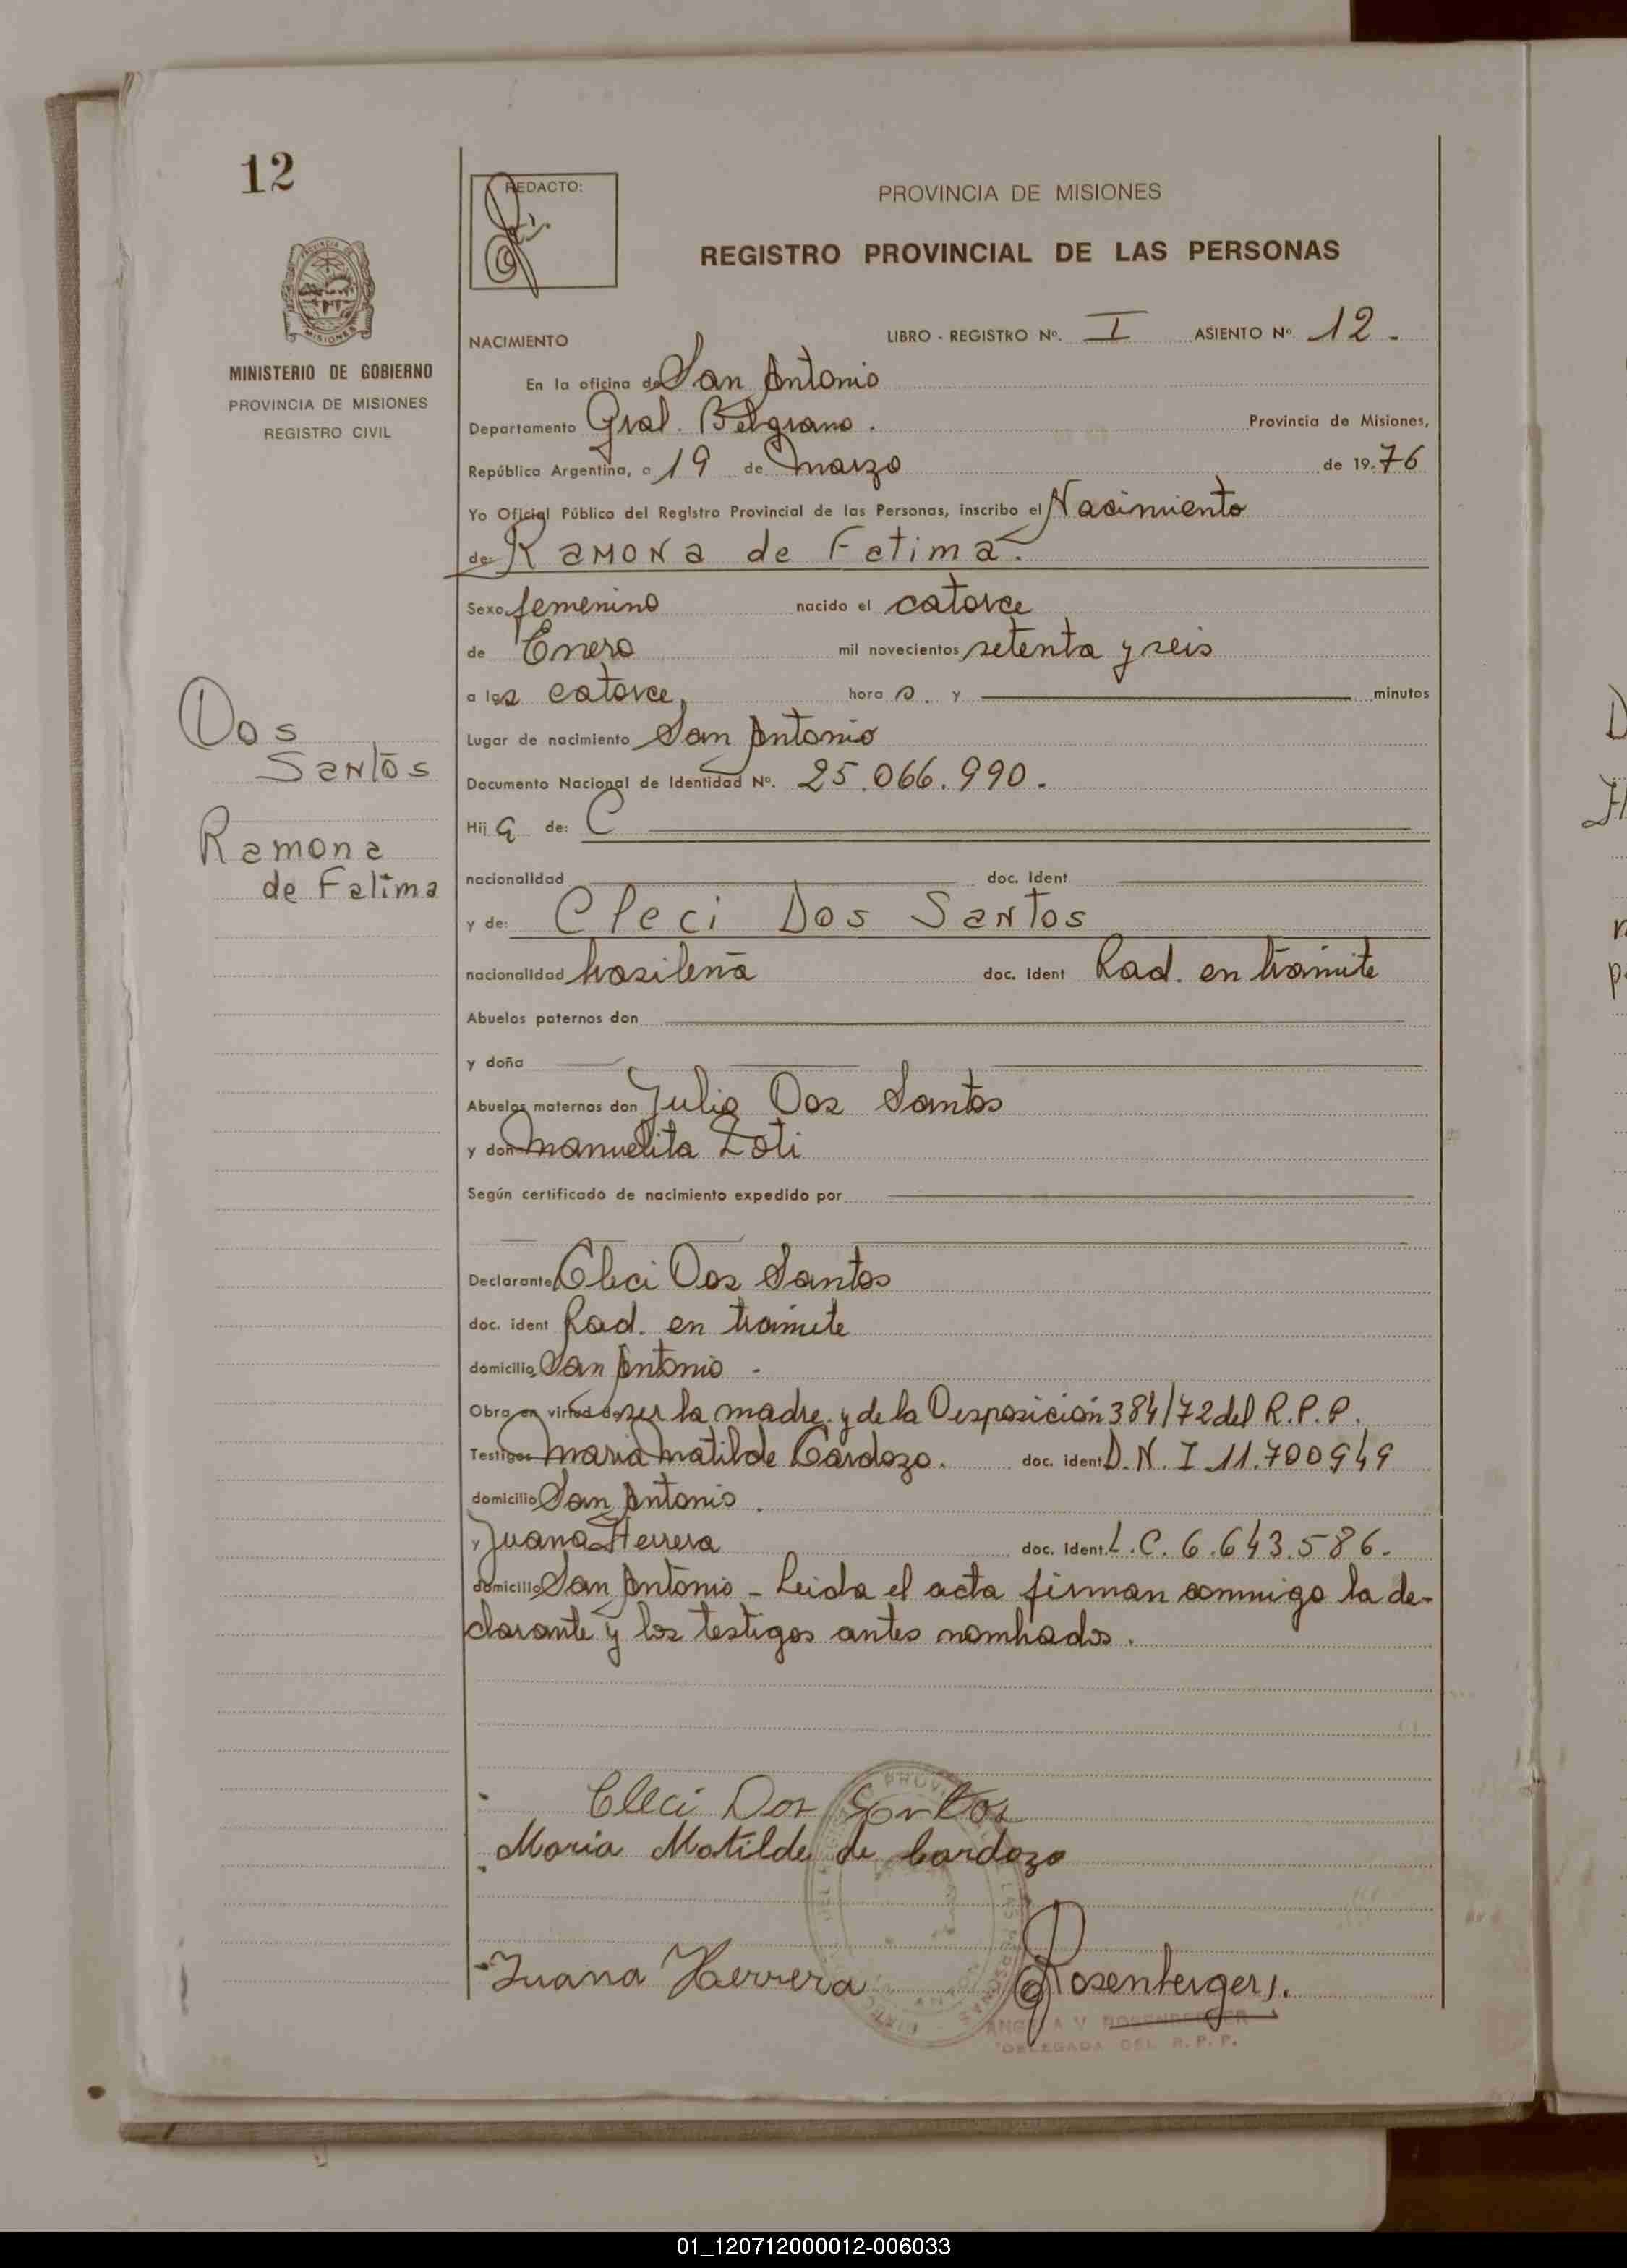 12
REDACTO:
PROVINCIA DE MISIONES
REGISTRO PROVINCIAL DE LAS PERSONAS
MISIONES
MINISTERIO DE GOBIERNO
PROVINCIA DE MISIONES
REGISTRO CIVIL
NACIMIENTO LIBRO - REGISTRO Nº. I ASIENTO Nº. 12 -
En la oficina de San Antonio
Departamento Gral. Belgrano. Provincia de Misiones,
República Argentina, a 19 de marzo de 19 76
Yo Oficial Público del Registro Provincial de las Personas, inscribo el Nacimiento
de: Ramona de Fatima.
Sexo femenino nacido el catorce
de Enero mil novecientos setenta y seis
a las catorce hora s. y minutos
Dos
Santos
Ramona
de Fatima
Lugar de nacimiento San Antonio
Documento Nacional de Identidad Nº. 25.066.990.
Hij a de: C
nacionalidad doc. ident
y de: Cleci Dos Santos
nacionalidad brasileña doc. ident Rad. en trámite
Abuelos paternos don
y doña
Abuelos maternos don Julio Dos Santos
y doña Manuelita Zoti
Según certificado de nacimiento expedido por
Declarante Cleci Dos Santos
doc. ident Rad. en trámite
domicilio San Antonio -
Obra en virtud de ser la madre y de la Disposición 384/72 del R.P.P.
Testigos Maria Matilde Cardozo. doc. ident D.N.I 11.700949
domicilio San Antonio.
y Juana Herrera doc. ident. L.C. 6.643.586.
domicilio San Antonio - Leida el acta firman conmigo la de-
clarante y los testigos antes nombrados.
Cleci Dos Santos
Maria Matilde de Cardozo
Juana Herrera Rosenberger
ANGELA V. ROSENBERGER
DELEGADA DEL R.P.P.
01_120712000012-006033